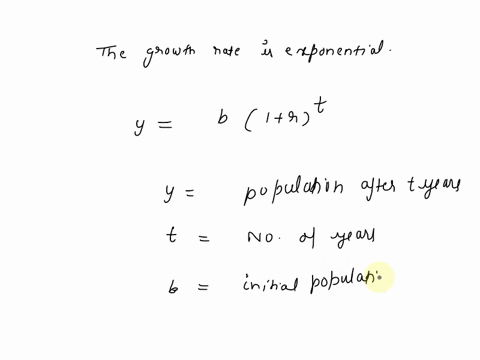 The growth rate is exponential.
y = b (1+r)^t
y = population after t years
t = No. of years
b = initial populati